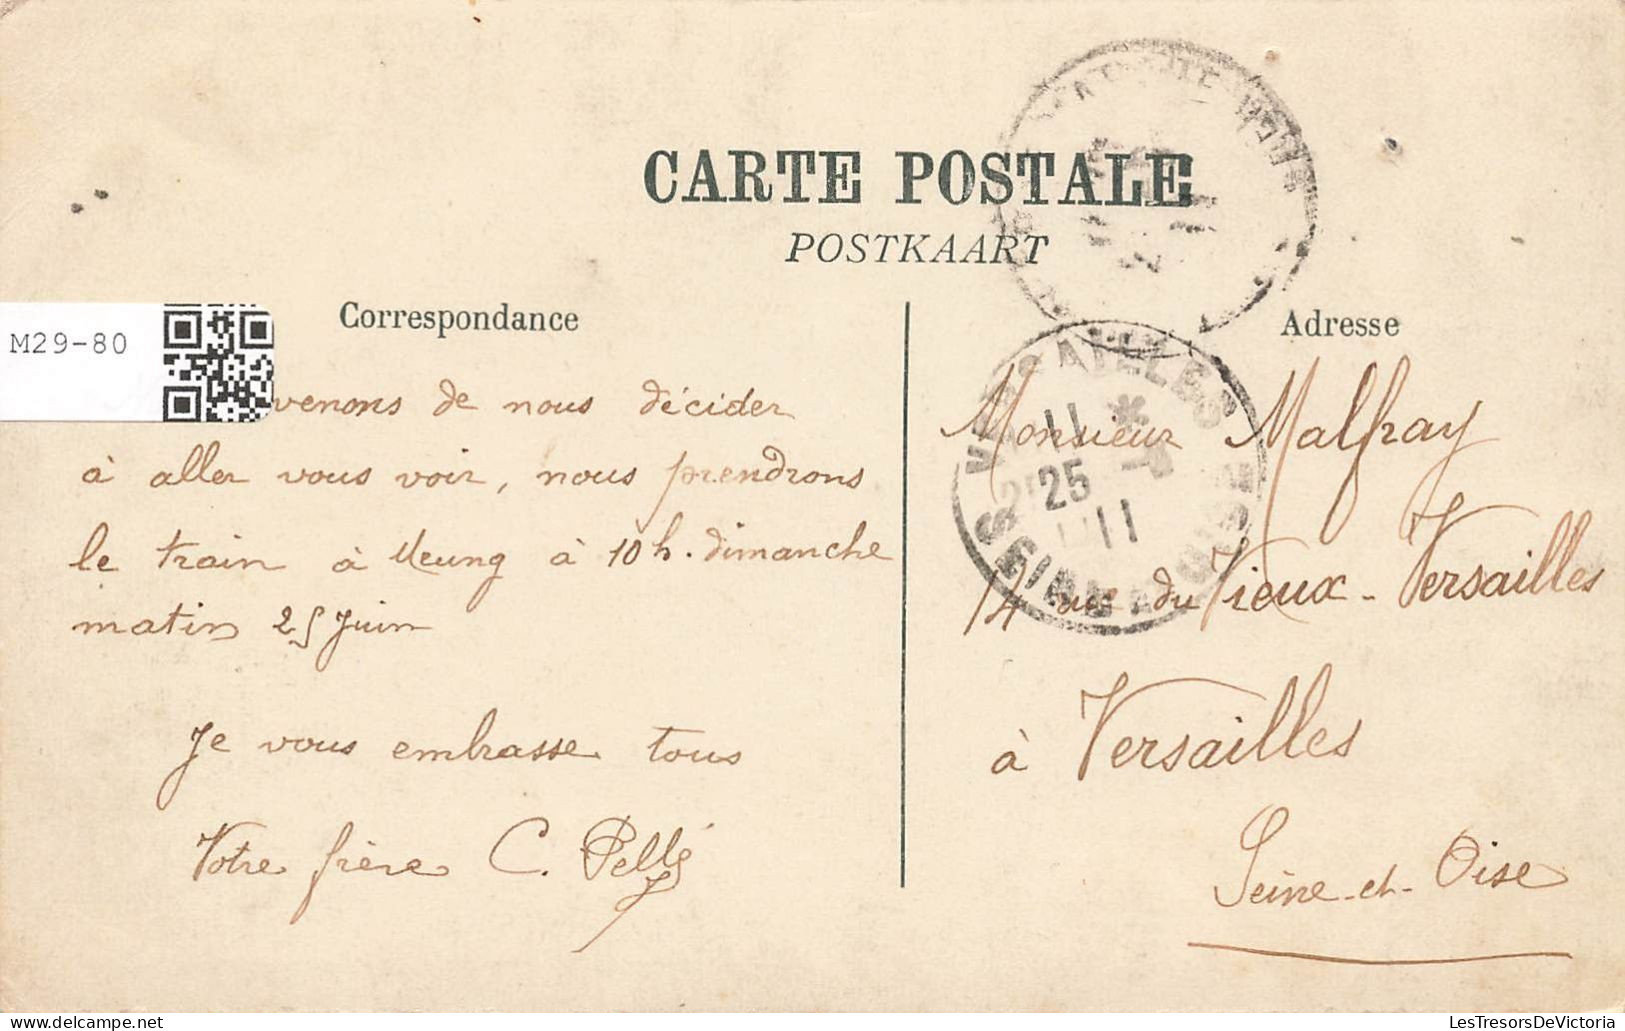 CARTE POSTALE
POSTKAART
M29-80
Correspondance
venons de nous décider
à aller vous voir, nous prendrons
le train à Meung à 10h. dimanche
matin 25 Juin
Je vous embrasse tous
Votre frère C. Pellé
Adresse
Monsieur Malfray
14 rue du Vieux-Versailles
à Versailles
Seine-et-Oise
VERSAILLES
11 *
25
11
SEINE ET OISE
LesTresorsDeVictoria